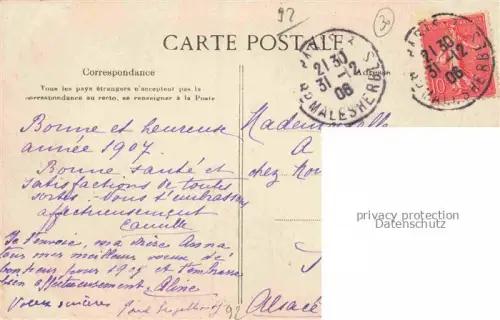 92
30
CARTE POSTALE
Correspondance
Tous les pays étrangers n'acceptent pas la
correspondance au recto, se renseigner à la Poste
Adresse
PARIS
21 30
31 -12
06
R. MALESHERBES
PARIS
21 30
31 -12
06
MALESHERBES
10
Bonne et heureuse
année 1907.
Bonne santé et
satisfactions de toutes
sortes. Vous t'embrassons
affectueusement
Camille
Je t'envoie, ma chère Anna
tous mes meilleurs voeux de
bonheur pour 1907 et t'embrasse
bien affectueusement. Aline
Voeux sincères
92
Mademoiselle
A
chez
Alsace
privacy protection
Datenschutz